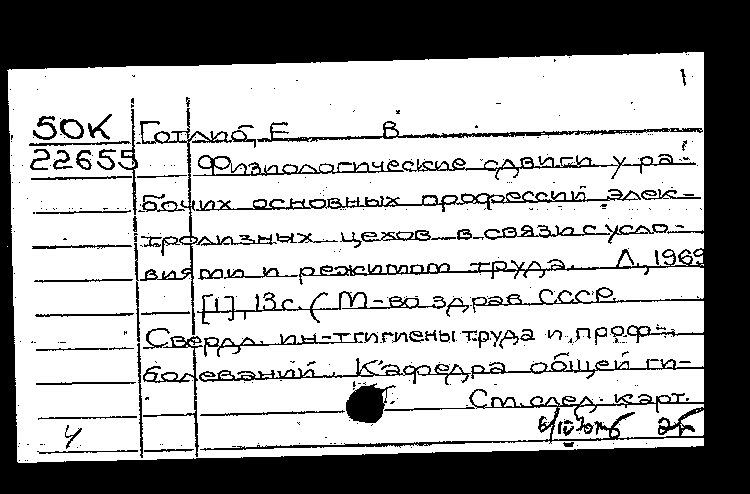 1
50К Готлиб, Е В
22655 Физиологические сдвиги у ра-
бочих основных профессий элек-
тролизных цехов в связи с усло-
виями и режимом труда. Л., 1969
[1], 13 с. (М-во здрав СССР.
Свердл. ин-т гигиены труда и проф-
болеваний. Кафедра общей ги-
См. след. карт.
У